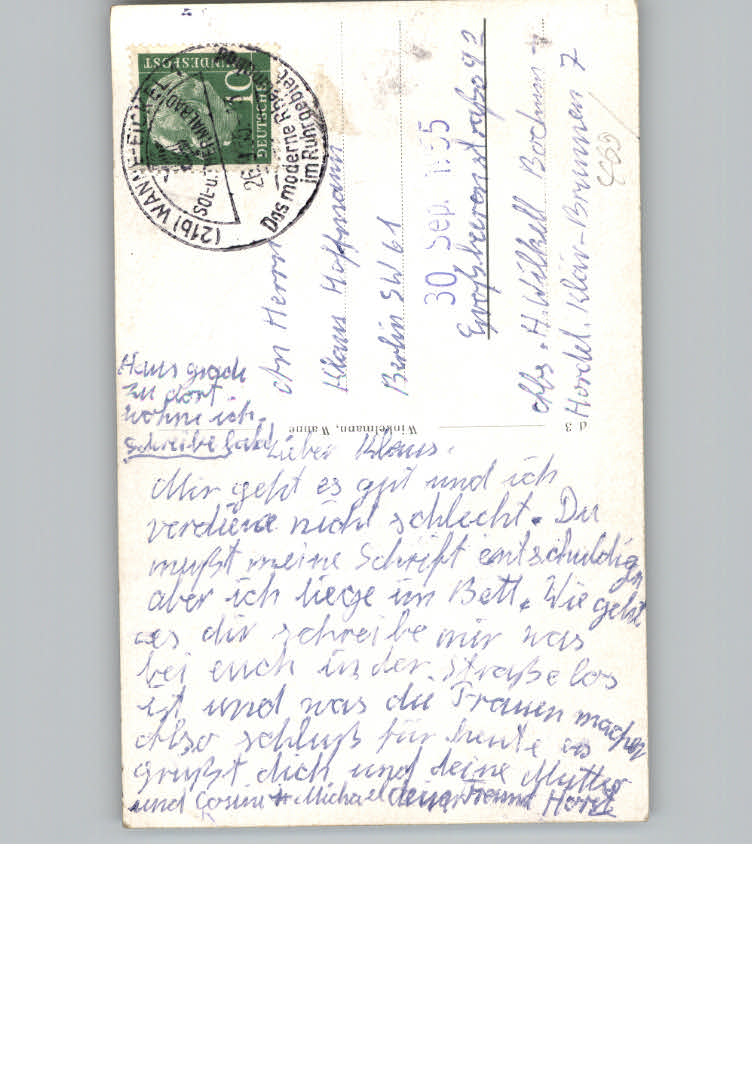 BUNDESPOST
10
DEUTSCHE
(21b) WANNE-EICKEL
SOL-u. THERMALBAD
Das moderne Rheumabad
im Ruhrgebiet
An Herrn
Klaus Hoffmann
Berlin SW 61
30 Sep. 1955
Großbeerenstraße 92
Abs. H. Bochum-
Hordel. Klär-Brunnen 7
d 3
Winkelmann, Wanne
Haus grade
zu dort.
wohne ich.
schreibe bald
Lieber Klaus.
Mir geht es gut und ich
verdiene nicht schlecht. Du
mußt meine Schrift entschuldign
aber ich liege im Bett. Wie geht
es dir schreibe mir was
bei euch in der Straße los
ist und was die Frauen machen
Also schluß für heute es
grüßt dich und deine Mutter
und Michael deiner Freund Horst